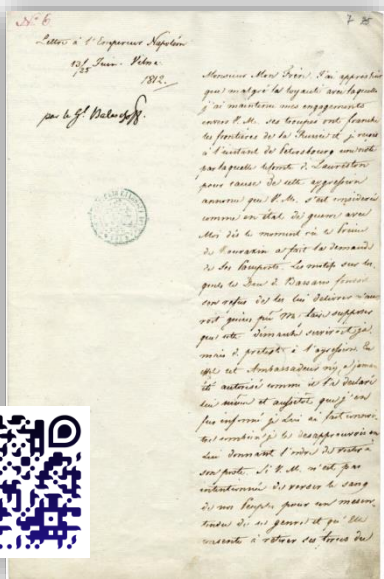 No. 6
7
Lettre à l'Empereur Napoléon
13/25 Juin. Vilna
1812.
par le Gl. Balacheff.
Monsieur Mon Frère. J'ai appris hier
que malgré la loyauté avec laquelle
j'ai maintenu mes engagements
envers V. M. ses troupes ont franchi
les frontières de la Russie et je reçois
à l'instant de Pétersbourg une note
par laquelle le Comte de Lauriston
pour cause de cette aggression
annonce que V. M. s'est considérée
comme en état de guerre avec
Moi dès le moment où le Prince
de Kourakin a fait la demande
de Ses Passeports. Les motifs sur les
quels le Duc de Bassano fondoit
son refus de les lui délivrer n'au
roit pu Me faire supposer
que cette démarche serviroit ja
mais de prétexte à l'aggression. En
effet cet Ambassadeur n'y a jamais
été autorisé comme il l'a déclaré
lui même et aussitôt que j'en
fus informé je lui ai fait connoî
tre combien je le désapprouvois en
lui donnant l'ordre de rester à
son poste. Si V. M. n'est pas
intentionnée de verser le sang
de nos Peuples pour un mesen
tendu de ce genre et qu'Elle
consente à retirer ses troupes du